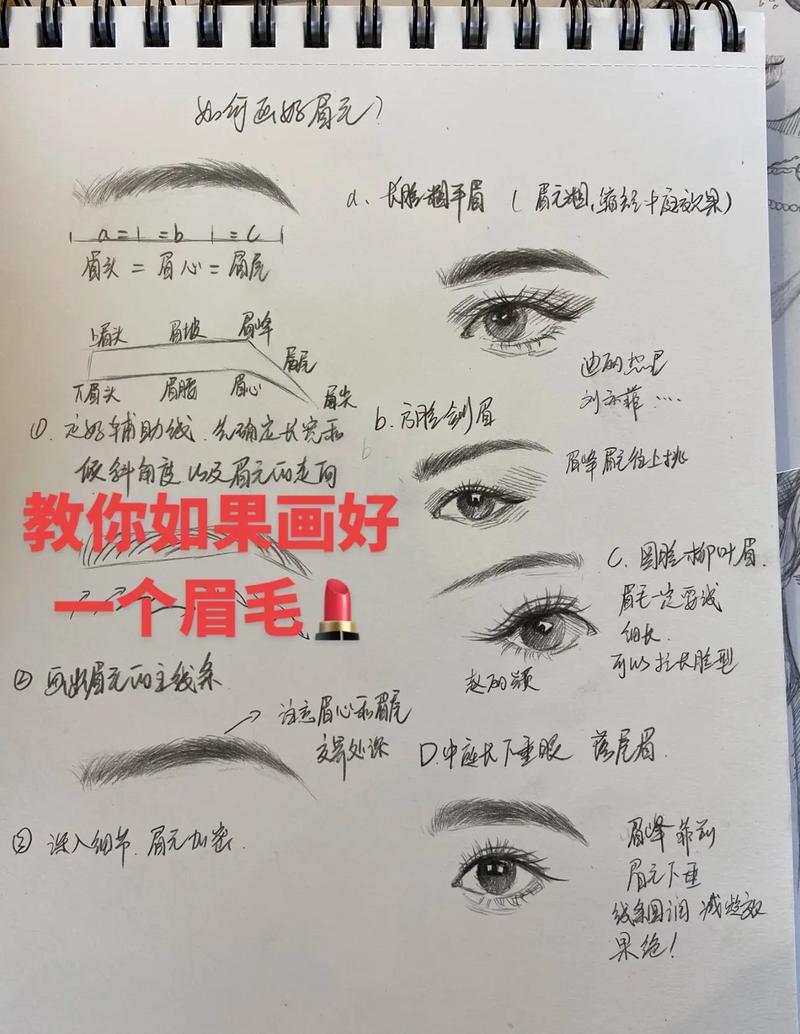 如何画好眉毛?
a = | = b | = c
眉头 = 眉心 = 眉尾
上眉头 眉坡 眉峰
眉尾
下眉头 眉腰 眉心 眉尖
①. 定好辅助线. 先确定长宽和
倾斜角度 以及眉毛的走向
教你如果画好
一个眉毛💄
② 画出眉毛的主线条
注意眉心和眉尾
交界处深
③ 深入细节. 眉毛加密.
a. 长脸粗平眉 ( 眉毛粗, 缩短中庭效果)
迪丽热巴
刘亦菲 ....
b. 方脸剑眉
眉峰眉毛往上挑
C. 圆脸柳叶眉.
眉毛一定要浅
细长.
可以拉长脸型
赵丽颖
D. 中庭长下垂眼 落尾眉.
眉峰靠前
眉毛下垂
线条圆润 减龄效
果绝!